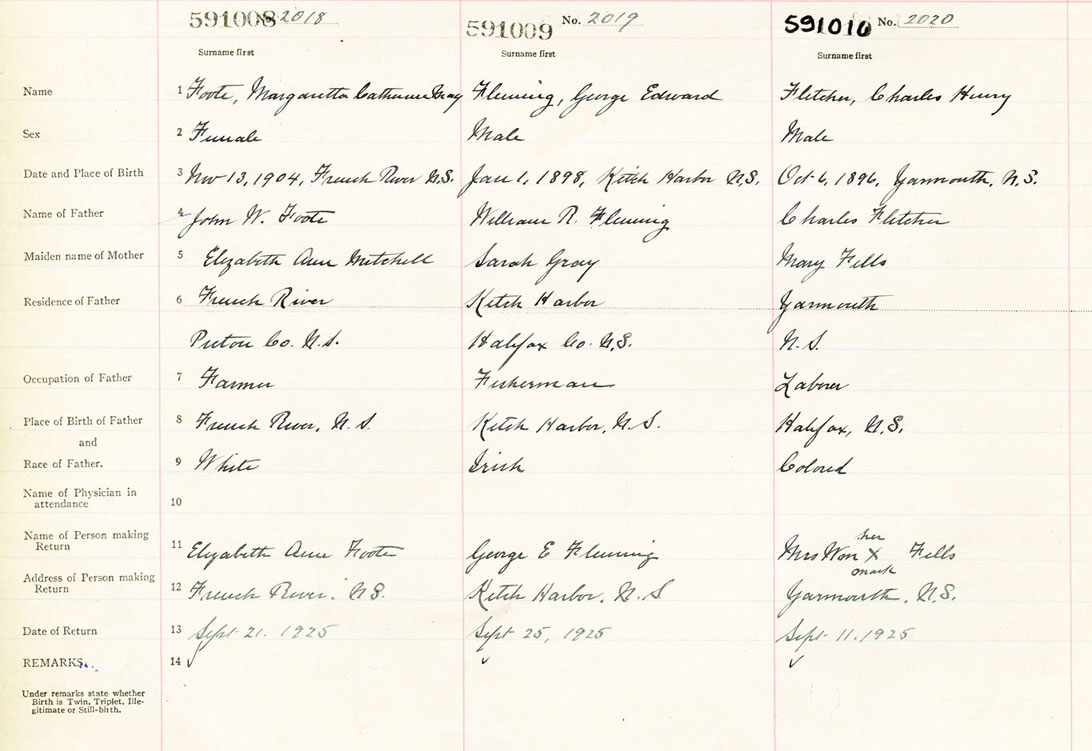 591008 2018 591009 No. 2019 591010 No. 2020
Surname first Surname first Surname first
Name 1 Foote, Margaretta Catherine Gray Fleming, George Edward Fletcher, Charles Henry
Sex 2 Female Male Male
Date and Place of Birth 3 Nov 13, 1904, French River N.S. Jan 1, 1898, Ketch Harbor N.S. Oct 6, 1896, Yarmouth, N.S.
Name of Father 4 John W. Foote William R. Fleming Charles Fletcher
Maiden name of Mother 5 Elizabeth Ann Mitchell Sarah Gray Mary Fells
Residence of Father 6 French River Ketch Harbor Yarmouth
Pictou Co. N.S. Halifax Co. N.S. N.S.
Occupation of Father 7 Farmer Fisherman Laborer
Place of Birth of Father 8 French River, N.S. Ketch Harbor, N.S. Halifax, N.S.
and
Race of Father. 9 White Irish Colored
Name of Physician in
attendance 10
Name of Person making
Return 11 Elizabeth Ann Foote George E Fleming Mrs Wm her X mark Fells
Address of Person making
Return 12 French River, N.S. Ketch Harbor, N.S. Yarmouth, N.S.
Date of Return 13 Sept 21. 1925 Sept 25, 1925 Sept 11. 1925
REMARKS. 14
Under remarks state whether
Birth is Twin, Triplet, Ille-
gitimate or Still-birth.